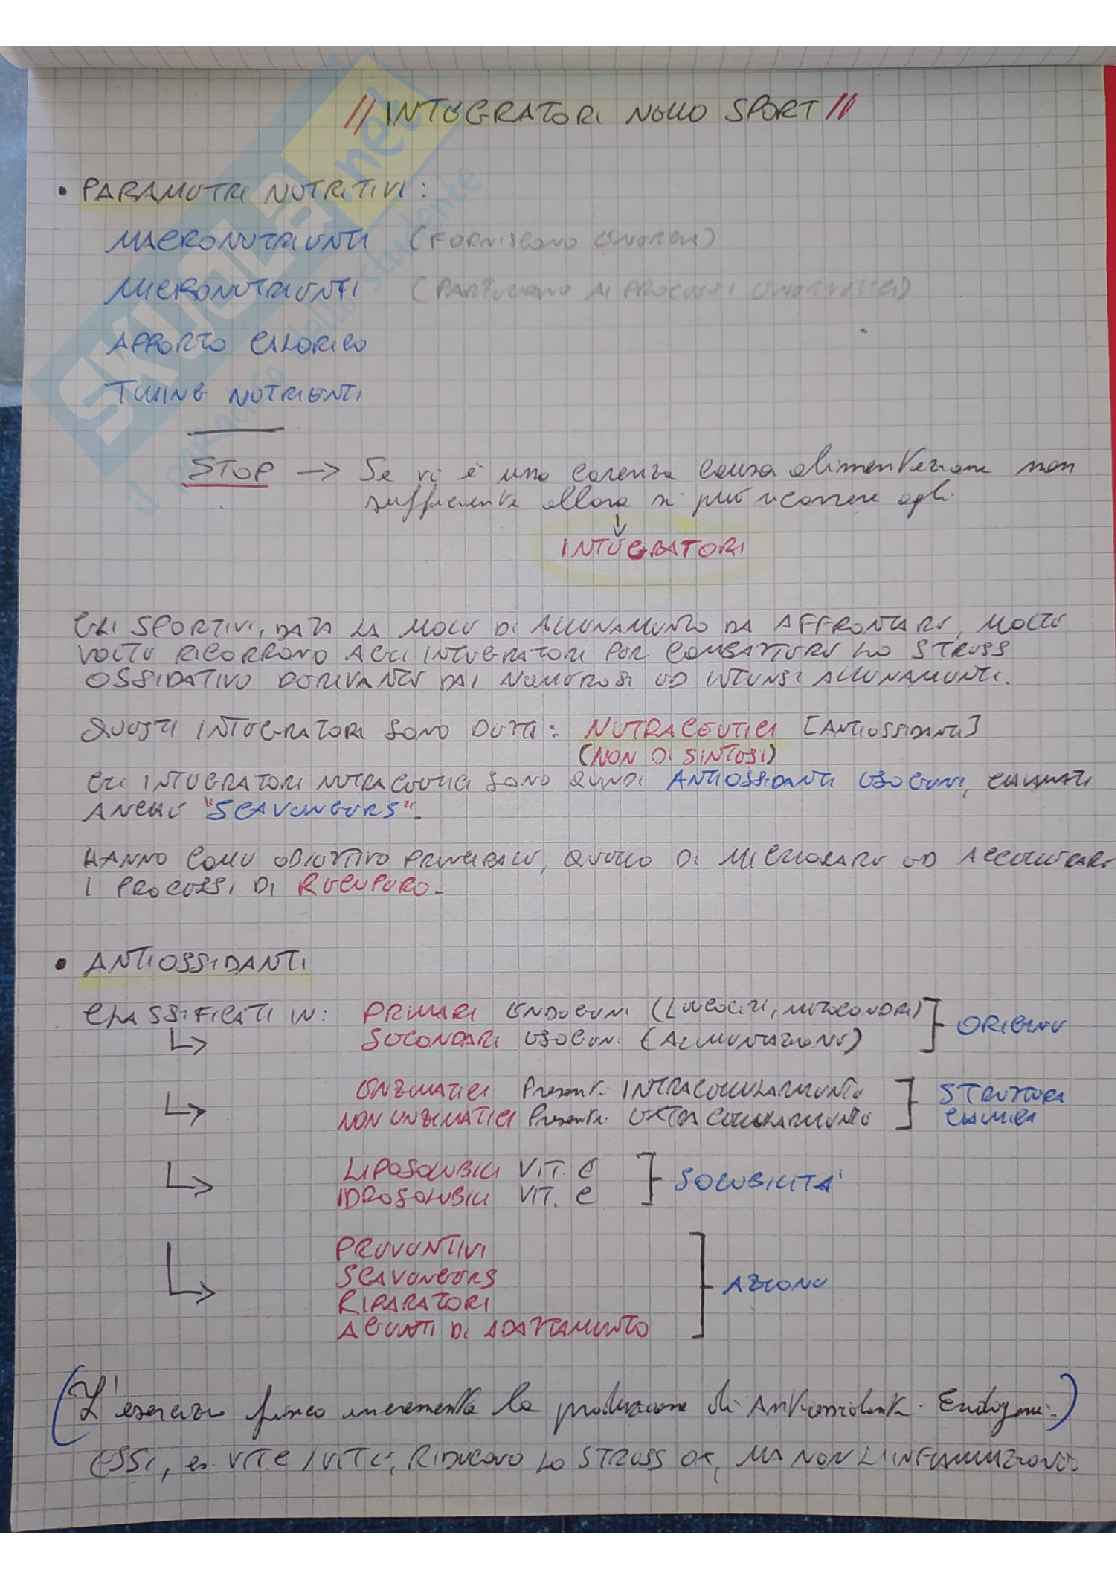 // INTEGRATORI NELLO SPORT //
• PARAMETRI NUTRITIVI:
MACRONUTRIENTI (FORNISCONO ENERGIA)
MICRONUTRIENTI (PARTECIPANO AI PROCESSI ENERGETICI)
APPORTO CALORICO
TIMING NUTRIENTI
STOP → Se vi è una carenza causa alimentazione non
sufficiente allora si può ricorrere agli
↓
INTEGRATORI
GLI SPORTIVI, DATA LA MOLE DI ALLENAMENTO DA AFFRONTARE, MOLTE
VOLTE RICORRONO AGLI INTEGRATORI PER COMBATTERE LO STRESS
OSSIDATIVO DERIVANTE DAI NUMEROSI ED INTENSI ALLENAMENTI.
QUESTI INTEGRATORI SONO DETTI: NUTRACEUTICI [ANTIOSSIDANTI]
(NON DI SINTESI)
GLI INTEGRATORI NUTRACEUTICI SONO QUINDI ANTIOSSIDANTI ESOGENI, CHIAMATI
ANCHE "SCAVENGERS".
HANNO COME OBIETTIVO PRINCIPALE, QUELLO DI MIGLIORARE ED ACCELERARE
I PROCESSI DI RECUPERO.
• ANTIOSSIDANTI
CLASSIFICATI IN: PRIMARI ENDOGENI (LEUCOCITI, MITOCONDRI)
SECONDARI ESOGENI (ALIMENTAZIONE) ] ORIGINE
ENZIMATICI Presenti INTRACELLULARMENTE
NON ENZIMATICI Presenti EXTRACELLULARMENTE ] STRUTTURA CHIMICA
LIPOSOLUBILI VIT. E
IDROSOLUBILI VIT. C ] SOLUBILITA'
PREVENTIVI
SCAVENGERS
RIPARATORI
AGENTI DI ADATTAMENTO ] AZIONE
(L'esercizio fisico incrementa la produzione di Antiossidanti Endogeni.)
ESSI, es. VIT C / VIT E, RIDUCONO LO STRESS OX, MA NON L'INFIAMMAZIONE
SKUOLA.net